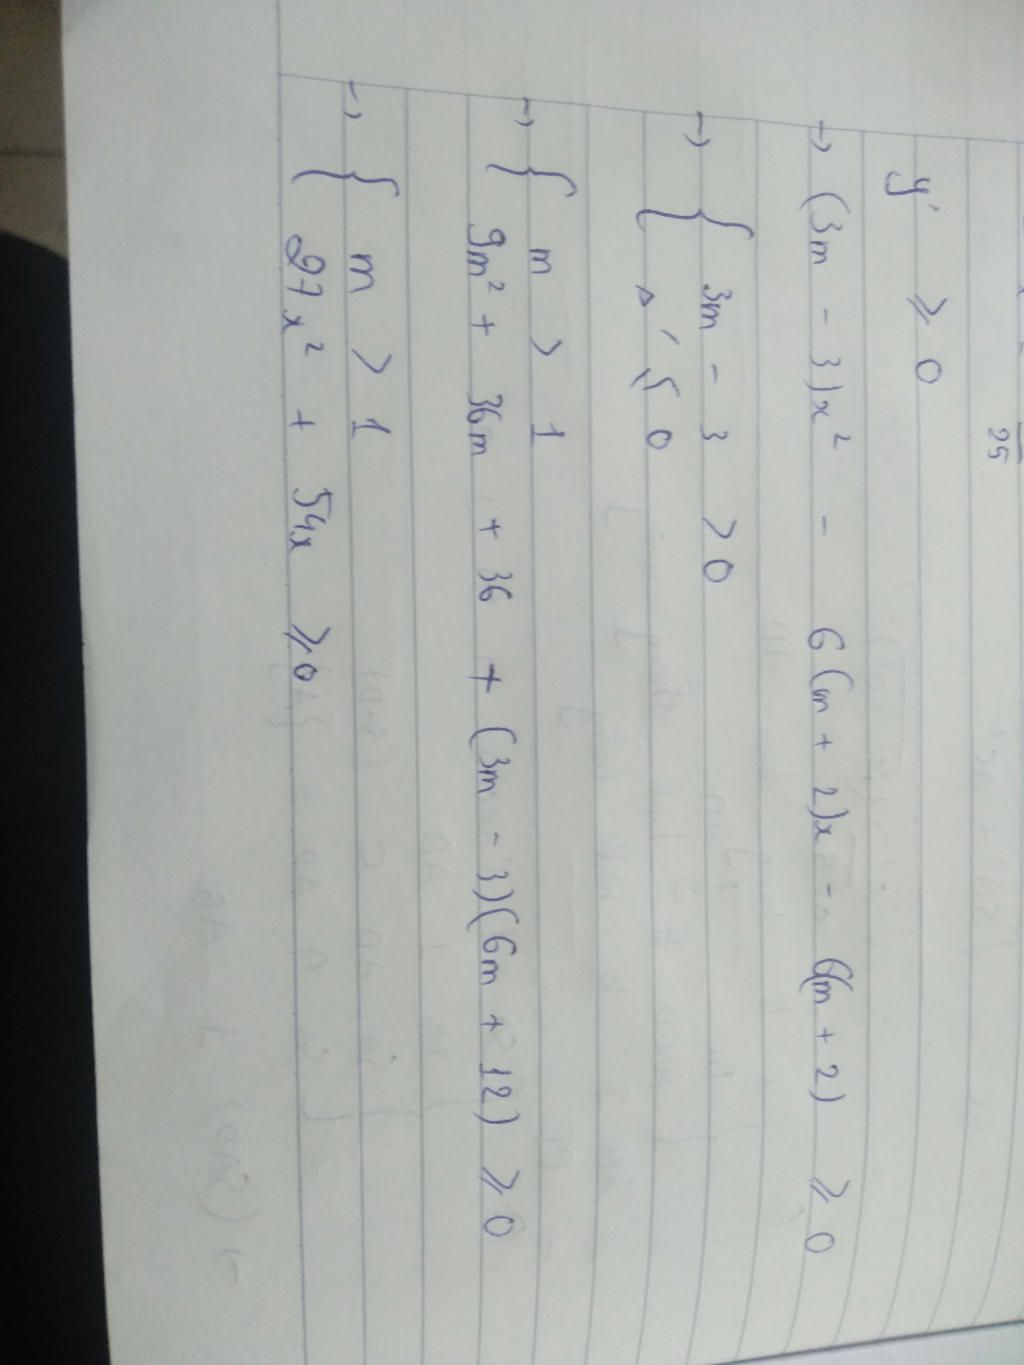 25
y' ⩾ 0
→ (3m - 3)x² - 6(m + 2)x - 6(m + 2) ⩾ 0
→ { 3m - 3 > 0
Δ' ≤ 0
→ { m > 1
9m² + 36m + 36 + (3m - 3)(6m + 12) ⩾ 0
→ { m > 1
27x² + 54x ⩾ 0